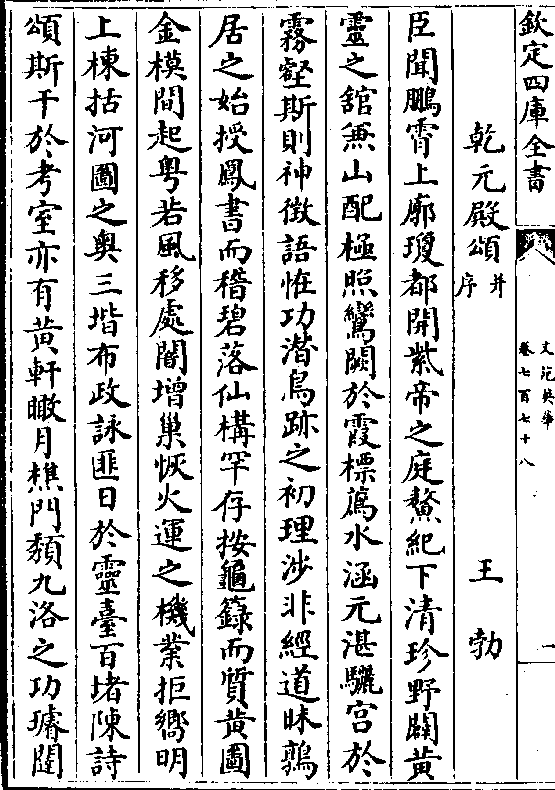 欽定四庫全書
文苑英華
卷七百七十八
一
乾元殿頌并序
王勃
臣聞鵬霄上廓瓊都開紫帝之庭鰲紀下清珍野闢黄
靈之舘兼山配極照鸞闕於霞標薦水涵元湛驪宫於
霧壑斯則神徴語恠功潜鳥跡之初理渉非經道昧鶉
居之始授鳳書而稽碧落仙構罕存按龜籙而質黄圖
金模間起粤若風移處闇增巢恢火運之機業拒嚮明
上棟括河圖之奥三堦布政詠匪日於靈臺百堵陳詩
頌斯干於考室亦有黄軒瞰月樵門纇九洛之功璿闥